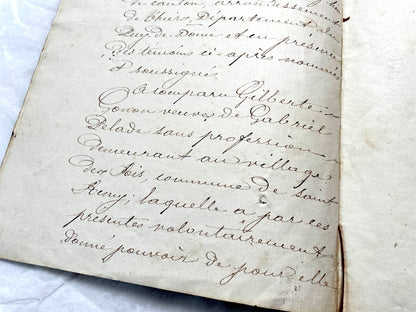 de canton, arrondissement
de Thiers, Département du
Puy-de-Dome et en présence
des témoins ci-après nommés
& soussignés.
A comparu Gilberte
Gonon veuve de Gabriel
Delade sans profession
demeurant au village
des commune de Saint
Remy, laquelle a par ces
présentes volontairement
donné pouvoir de pour elle